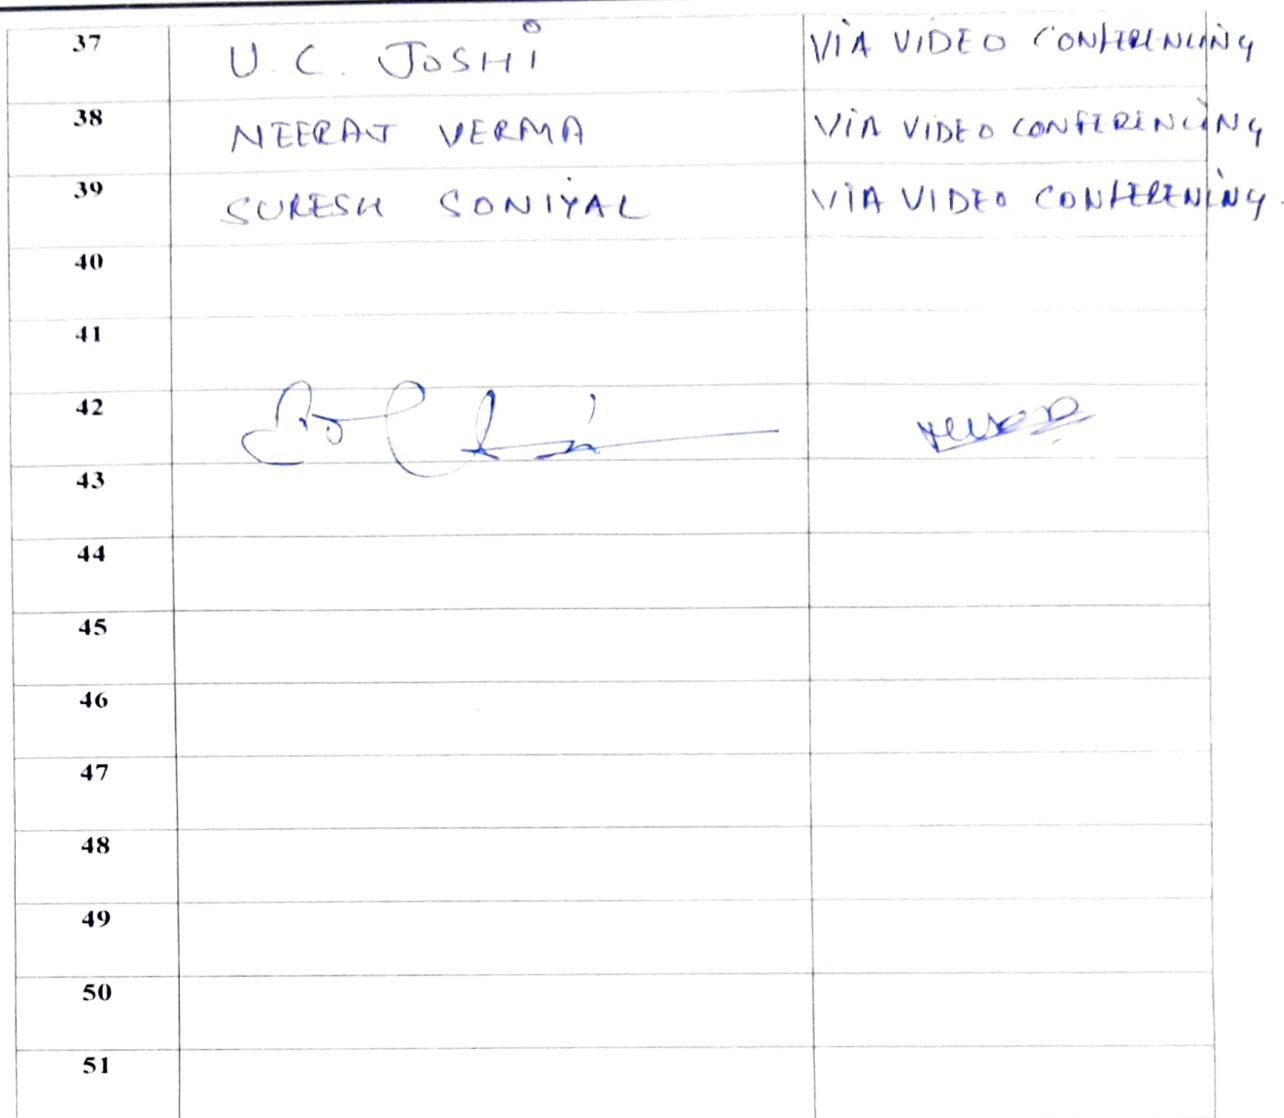 37 U. C. JOSHI VIA VIDEO CONFERENCING
38 NEERAJ VERMA VIA VIDEO CONFERENCING
39 SURESH SONIYAL VIA VIDEO CONFERENING.
40
41
42
43
44
45
46
47
48
49
50
51